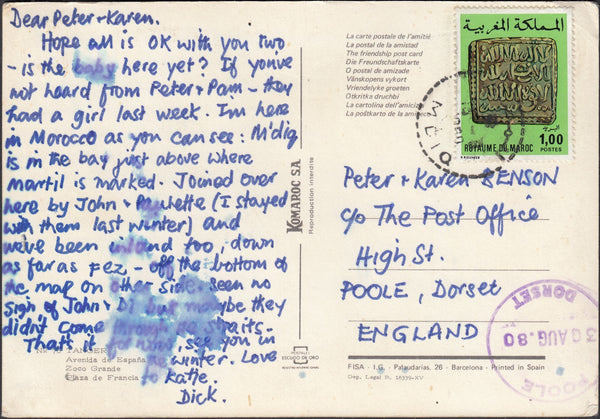 Dear Peter + Karen.
Hope all is OK with you two
- is the baby here yet? If you've
not heard from Peter + Pam - they
had a girl last week. I'm here
in Morocco as you can see: M'diq
is in the bay just above where
martil is marked. Joined over
here by John + Paulette (I stayed
with them last winter) and
we've been inland too, down
as far as Fez - off the bottom of
the map on other side. Seen no
sign of John + Di but maybe they
didn't come through the straits.
That's it for now, see you in
the winter. Love
to Katie.
Dick.
TANGER
Avenida de España
Zoco Grande
Plaza de Francia
La carte postale de l'amitié
La postal de la amistad
The friendship post card
Die Freundschaftskarte
O postal de amizade
Vänskapens vykort
Vriendelyke groeten
Otkritka druchbi
La cartolina dell'amicizia
La postkarto de la
KOMAROC S.A.
Reproduction interdite
POSTALES
ESCUDO DE ORO
المملكة المغربية
1,00
ROYAUME DU MAROC
POSTES
Peter + Karen BENSON
c/o The Post Office
High St.
POOLE, Dorset
ENGLAND
POOLE
30 AUG. 80
DORSET
FISA - I.G. - Palaudarias, 26 - Barcelona - Printed in Spain
Dep. Legal B. 16339-XV